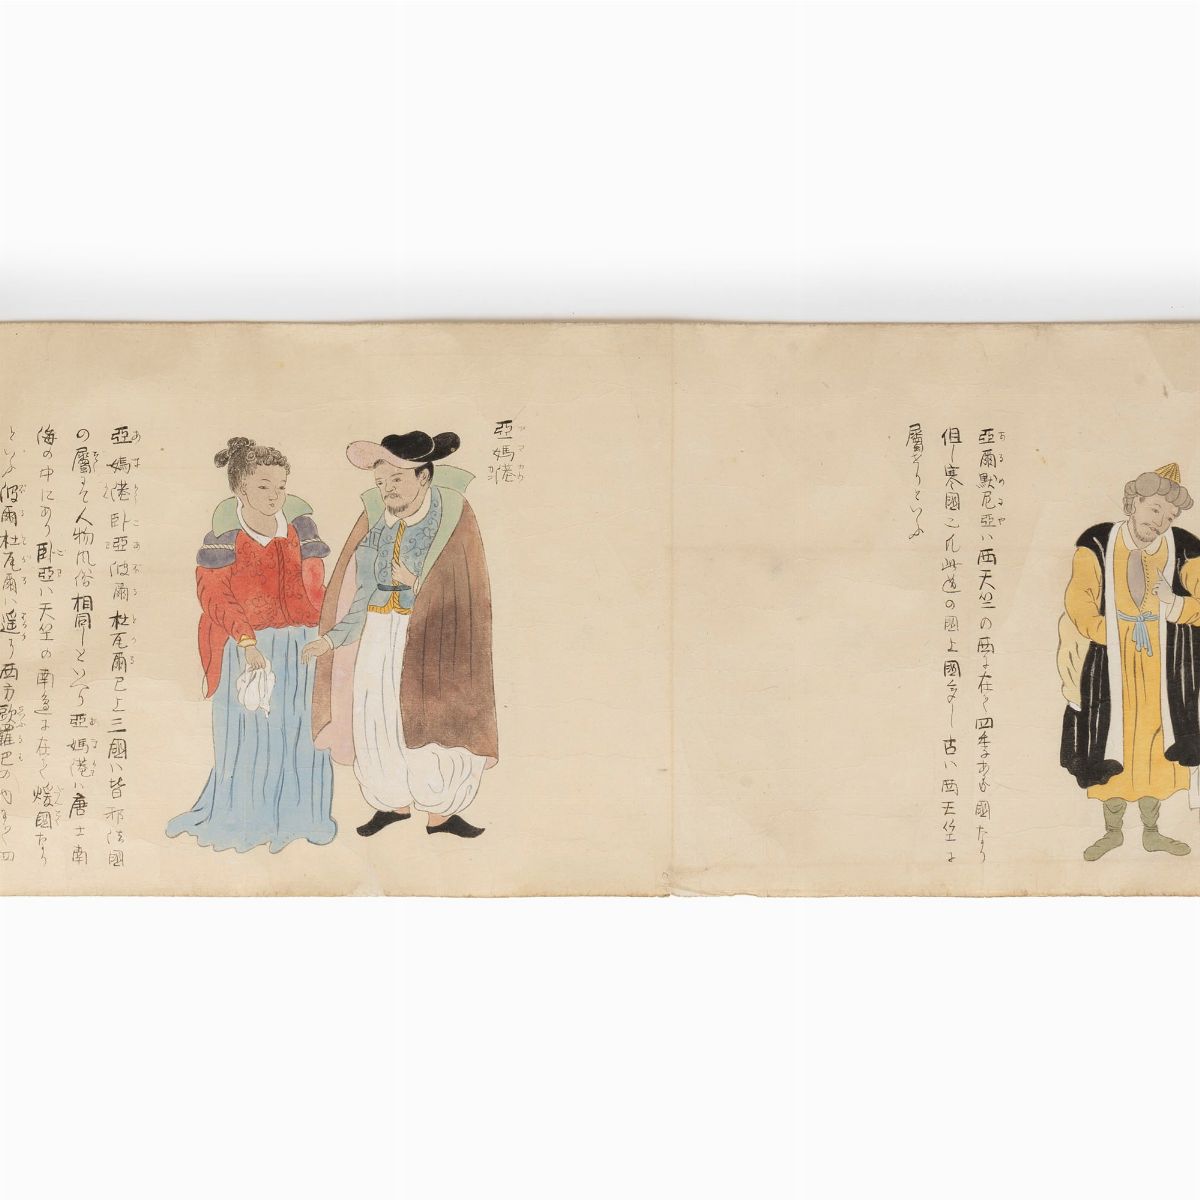 亞爾默尼亞ハ西天竺の西に在て四季ある國なり
但し寒國也凡此辺の國上國多し古ハ西天竺に
屬すといふ
亞媽港
亞媽港臥亞波爾杜瓦爾已上三國ハ皆邪法國
の屬にて人物風俗相同しといへり亞媽港ハ唐土南
海の中にあり臥亞ハ天竺の南邊に在て煖國なり
といふ波爾杜瓦爾ハ遥に西方歐羅巴の内にて四